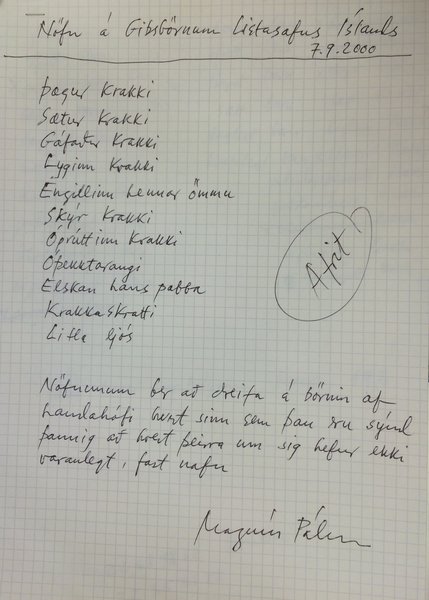 Nöfn á Gibsbörnum Listasafns Íslands
7.9.2000
Þægur Krakki
Sætur Krakki
Gáfaður Krakki
Lyginn Krakki
Engillinn hennar ömmu
Skýr Krakki
Óprúttinn Krakki
Óþekktarangi
Elskan hans pabba
Krakkaskratti
Litla ljós
Afrit
Nöfnunum ber að dreifa á börnin af
handahófi hvert sinn sem þau eru sýnd
þannig að hvert þeirra um sig hefur ekki
varanlegt, fast nafn
Magnús Pálsson